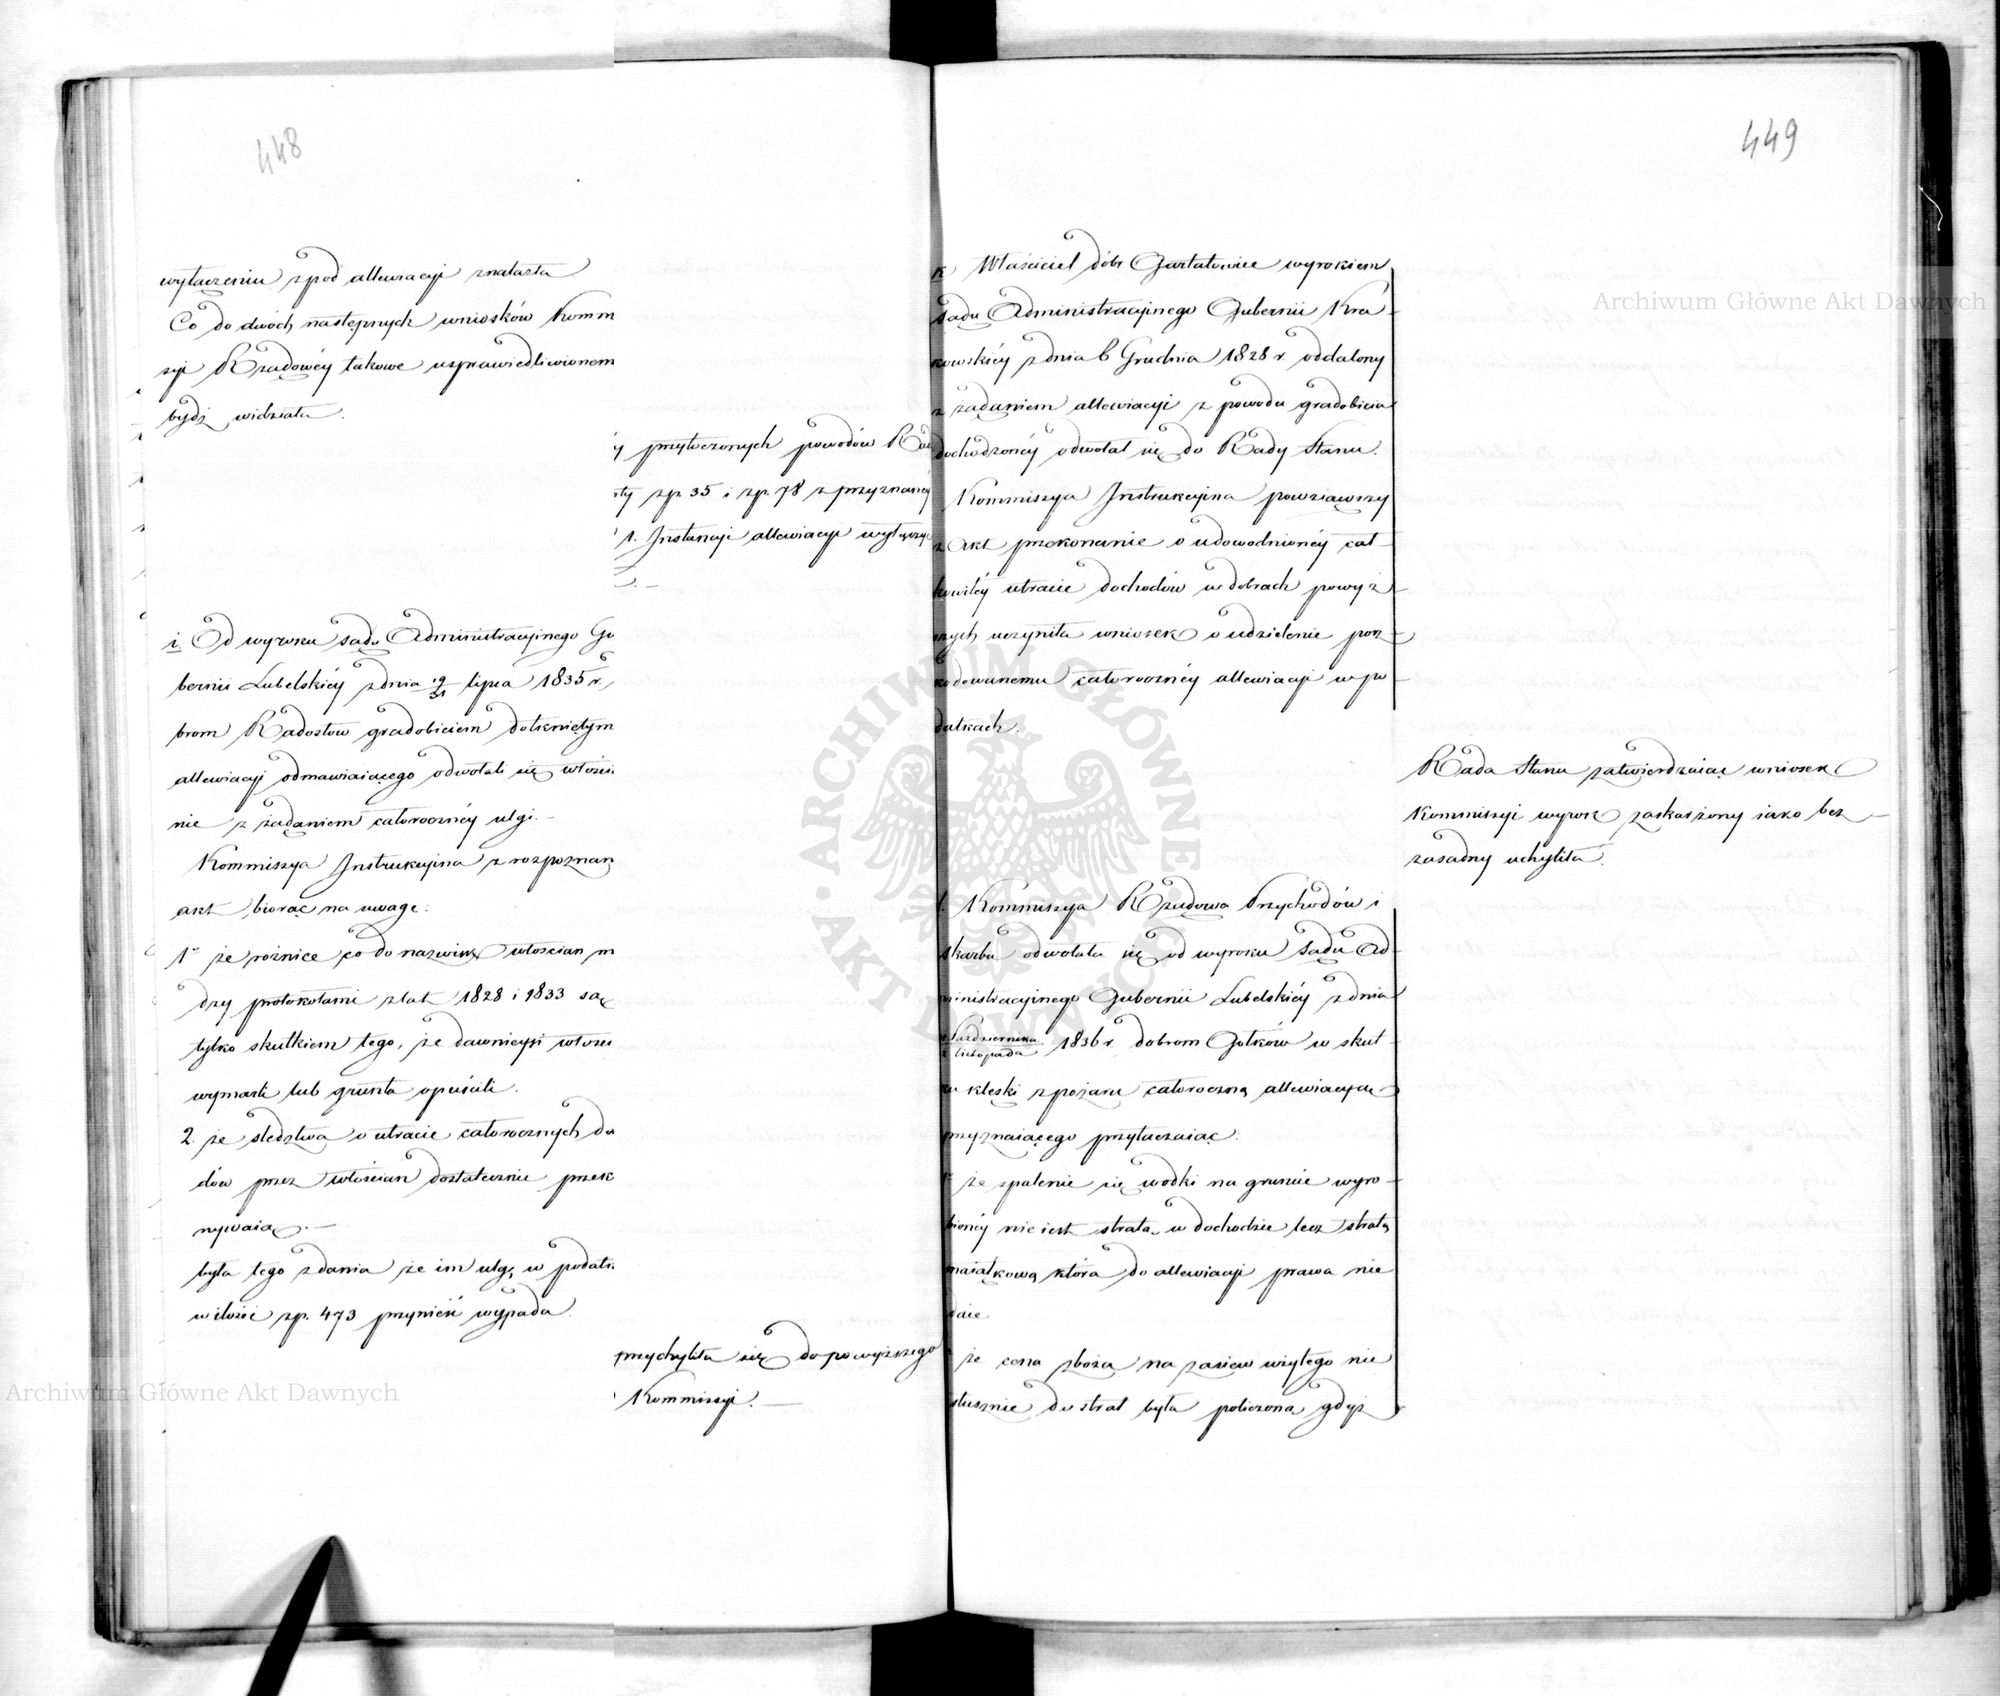 448
wyłączeniu zpod allewiacyi znalazła
Co do dwóch następnych wniosków Komm
syi Rządowéy takowe usprawiedliwionem
bydź widziała.
przytoczonych powodów Ra
zp. 35 i zp. 78 z przyznanéy
1. Instancyi allewiacyi wyłączyć
i. Od wyroku sądu Administracyjnego Gu
bernii Lubelskiéy z dnia 19/31 lipca 1835 r.
brom Radostow gradobiciem dotkniętym
allewiacyi odmawiaiącego odwołali się włości
nie z żądaniem całorocznéy ulgi.—
Kommissya Instrukcyina z rozpoznan
akt biorąc na uwagę:
1° że różnice co do nazwisk włościan m
dzy protokołami z lat 1828 i 1833 są
tylko skutkiem tego, że dawnieysi włości
wymarli lub grunta opuścili.
2. że śledztwa o utracie całorocznych do
dów przez włościan dostatecznie przek
nywaią.—
była tego zdania że im ulgę w podatk
w ilości zp. 473 przynieść wypada.
przychyliła się do powyższego
Kommissyi.—
449
k Właściciel dóbr Gartatowice wyrokiem
sądu Administracyjnego Gubernii Kra
kowskiéy z dnia 6 Grudnia 1828 r. oddalony
z żądaniem allewiacyi z powodu gradobicia
dochodzonéy odwołał się do Rady Stanu.
Kommissya Instrukcyina powziąwszy
z Akt przekonanie o udowodnionéy cał-
kowitéy utracie dochodów w dobrach powyż
szych uczyniła wniosek o udzielenie posz
kodowanemu całorocznéy allewiacyi w po
datkach.
Rada Stanu zatwierdzaiąc wniosek
Kommissyi wyrok zaskarżony iako bez
zasadny uchyliła.
l. Kommissya Rządowa Przychodów i
skarbu odwołała się od wyroku Sądu Ad-
ministracyjnego Gubernii Lubelskiéy z dnia
Października
listopada 1836 r. dobrom Gołków w skut
ku klęski z pożaru całoroczną allewiacyą
przyznaiącego przytaczaiąc:
że spalenie się wódki na gruncie wyro-
bionéy nie iest stratą w dochodzie lecz stratą
maiątkową która do allewiacyi prawa nie
daie
że cena zboża na zasiew użytego nie
słusznie do strat była policzona gdyż
Archiwum Główne Akt Dawnych
Archiwum Główne Akt Dawnych
ARCHIWUM GŁÓWNE AKT DAWNYCH